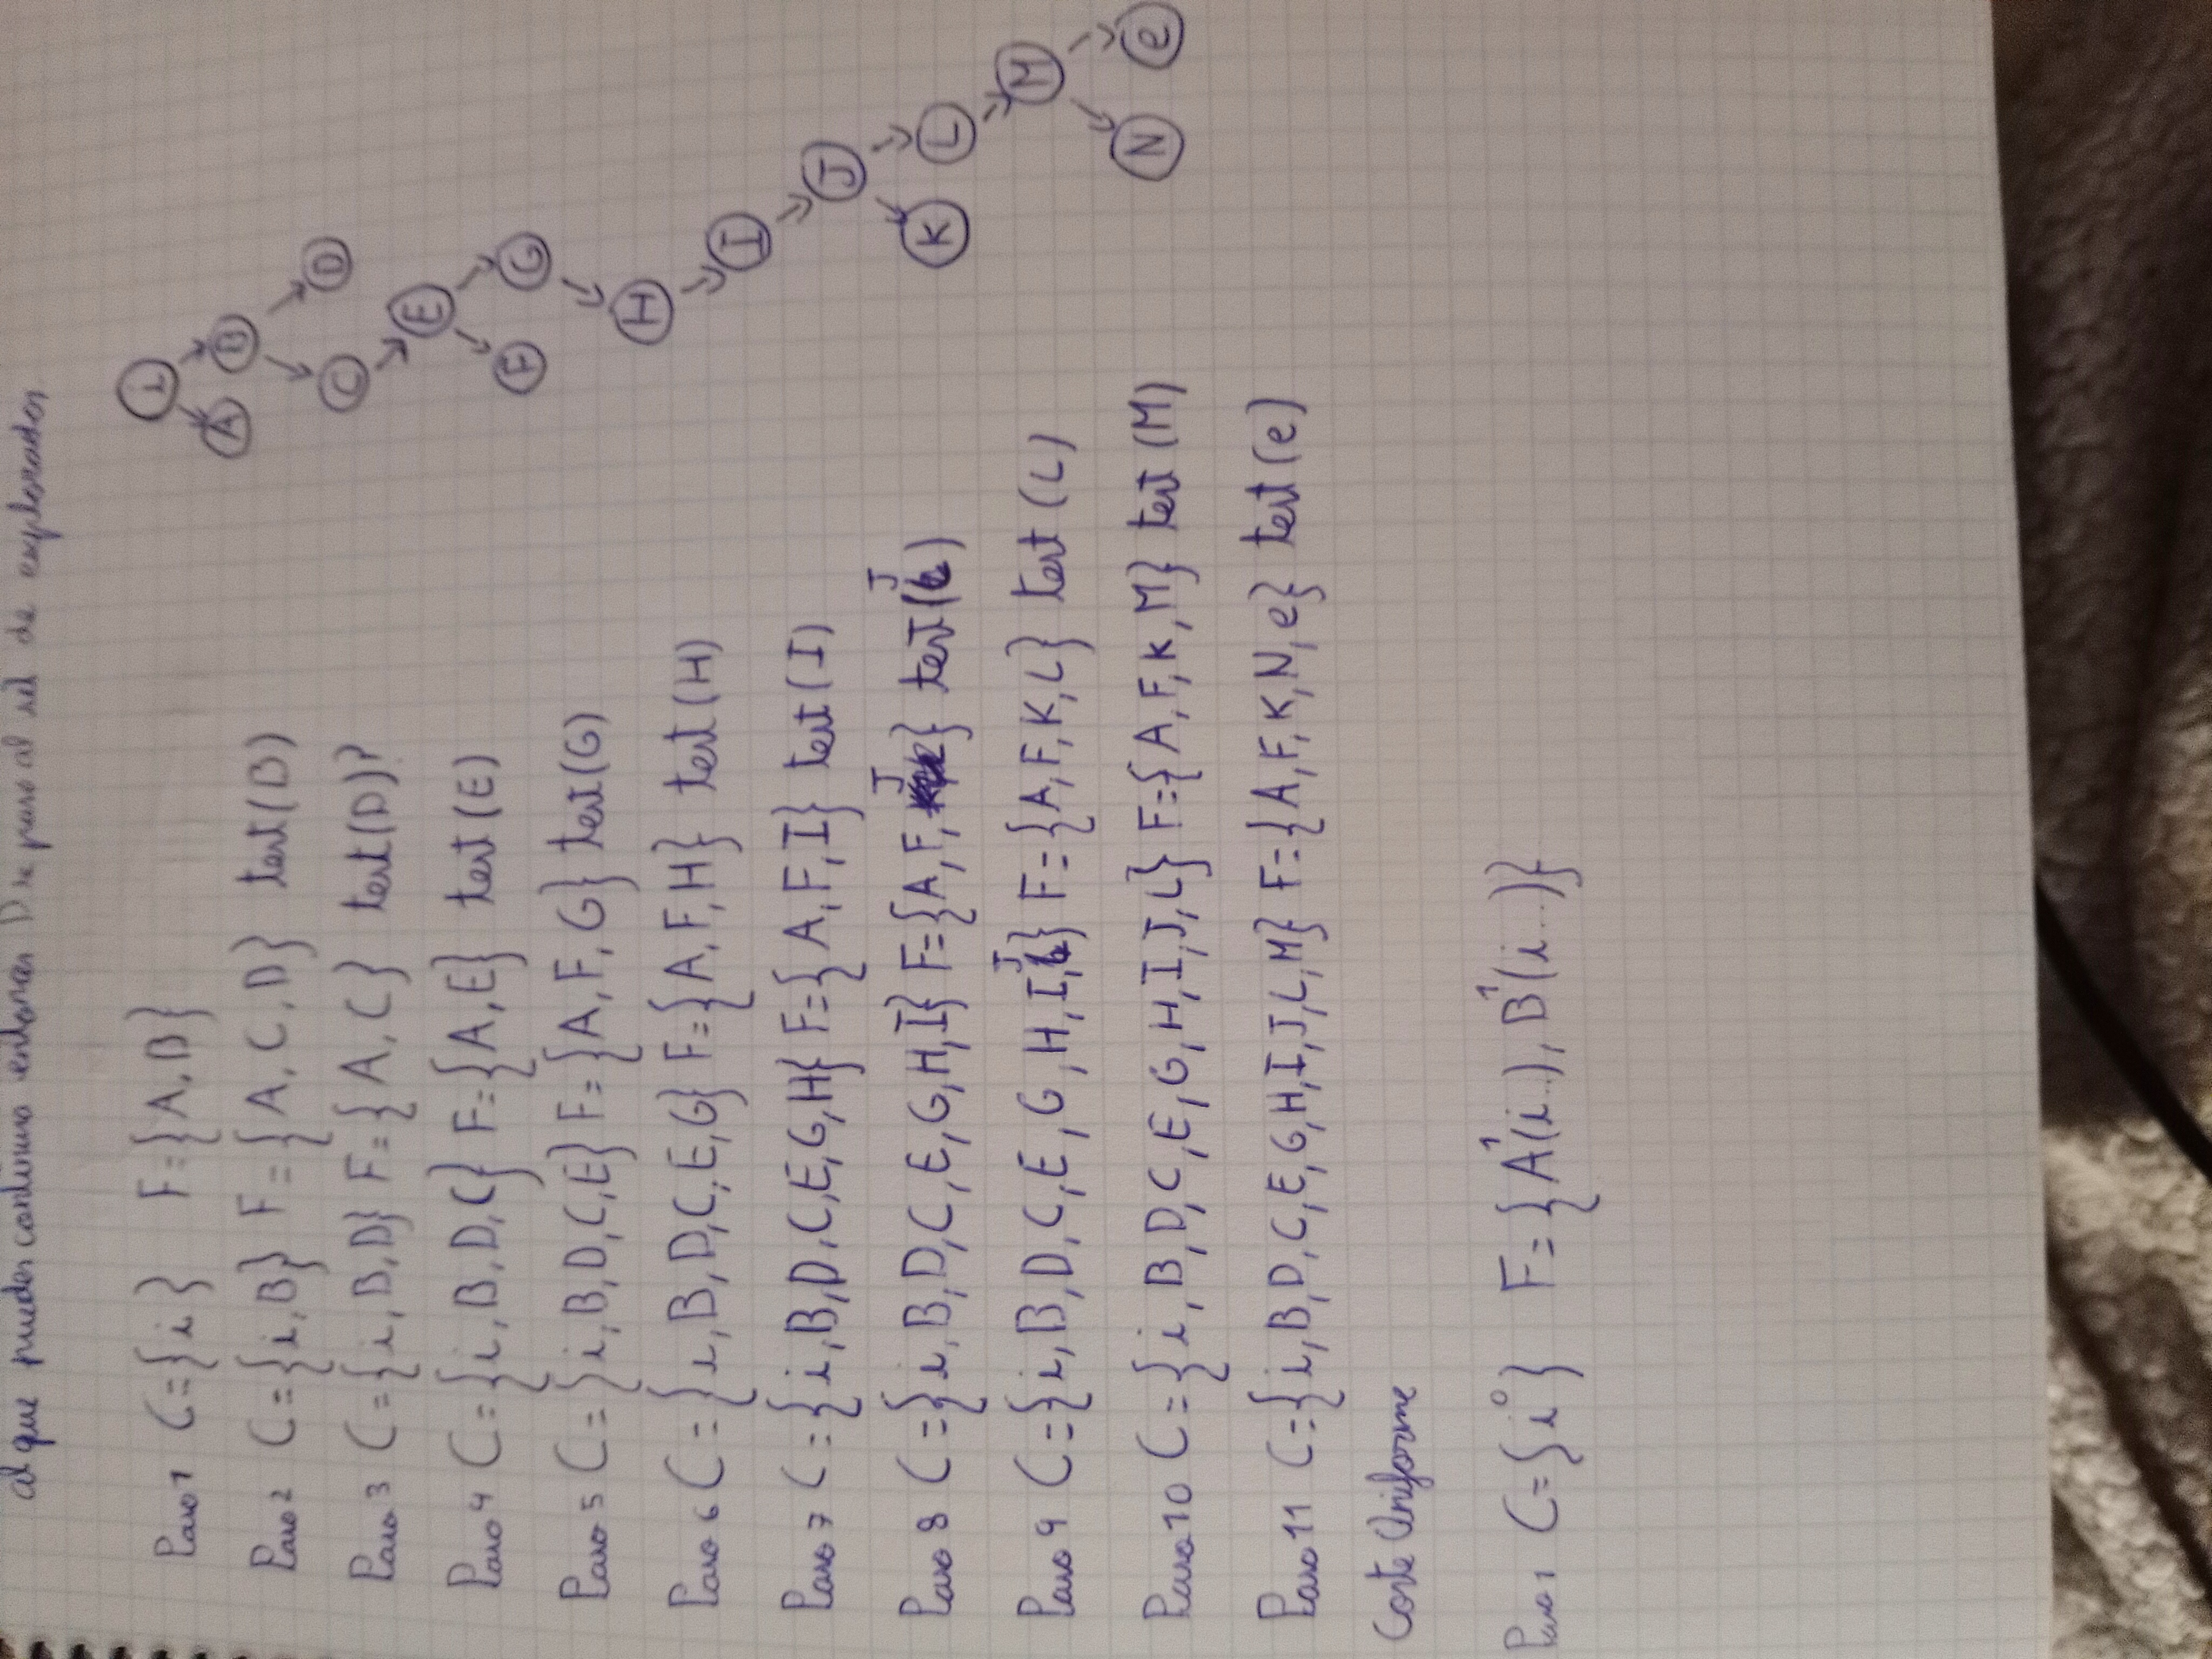 al que puedes continuar entonces D se paso al set de explorados.
Paso 1 C={i} F={A,B}
Paso 2 C={i,B} F={A,C,D} test(D)
Paso 3 C={i,B,D} F={A,C} test(D)?
Paso 4 C={i,B,D,C} F={A,E} test(E)
Paso 5 C={i,B,D,C,E} F={A,F,G} test(G)
Paso 6 C={i,B,D,C,E,G} F={A,F,H} test(H)
Paso 7 C={i,B,D,C,E,G,H} F={A,F,I} test(I)
Paso 8 C={i,B,D,C,E,G,H,I} F={A,F,J} test(J)
Paso 9 C={i,B,D,C,E,G,H,I,J} F={A,F,K,L} test(L)
Paso 10 C={i,B,D,C,E,G,H,I,J,L} F={A,F,K,M} test(M)
Paso 11 C={i,B,D,C,E,G,H,I,J,L,M} F={A,F,K,N,e} test(e)
Coste Uniforme
Paso 1 C={i⁰} F={A¹(i..), B¹(i...)}
i
A B
C D
E
F G
H
I
J
K L
M
N e